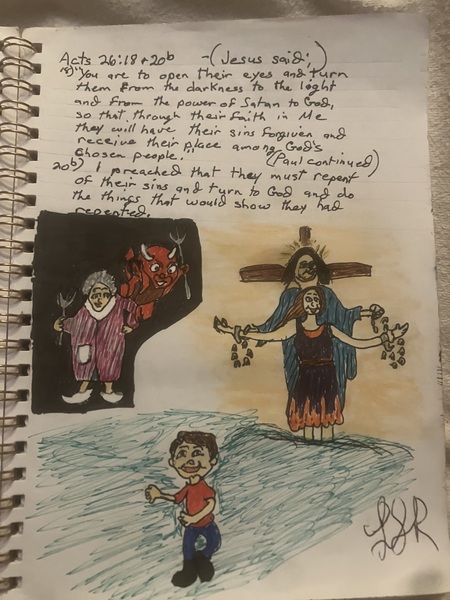 Acts 26:18 + 20b - (Jesus said;)
18) "You are to open their eyes and turn
them from the darkness to the light
and from the power of Satan to God,
so that through their faith in Me
they will have their sins forgiven and
receive their place among God's
chosen people. (Paul continued)
20b) I preached that they must repent
of their sins and turn to God and do
the things that would show they had
repented.